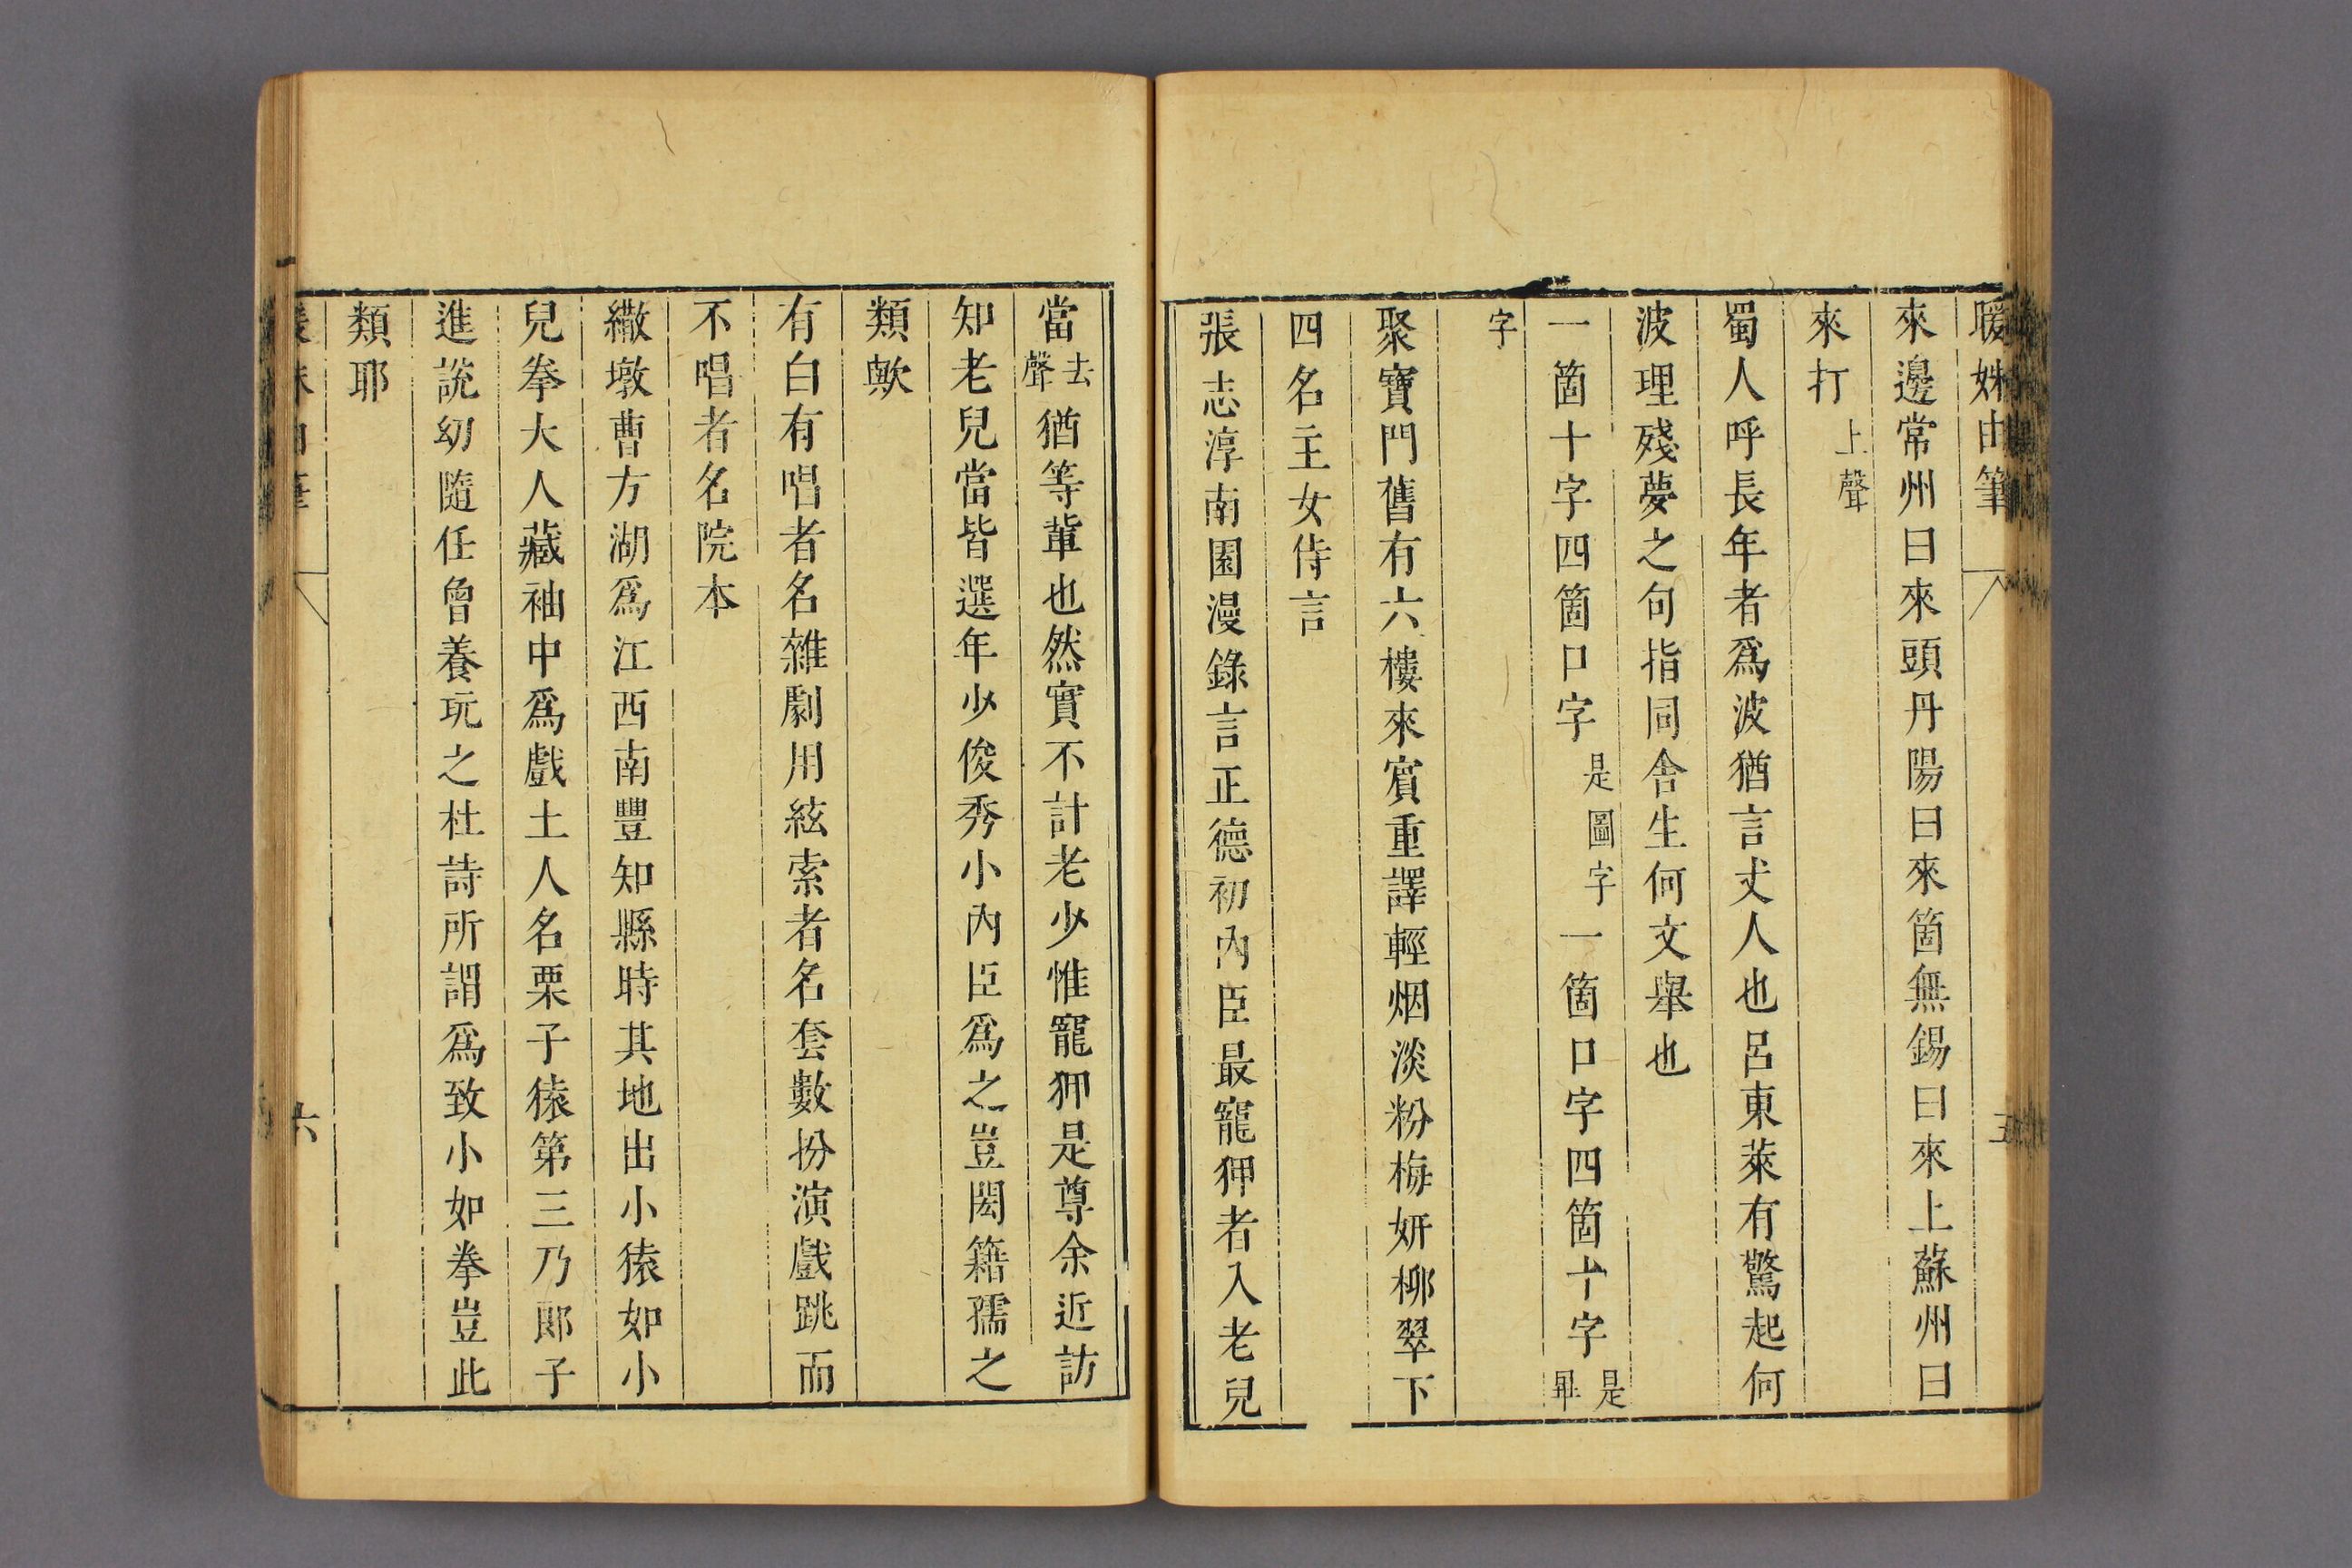 暖姝由筆
五
來邊常州曰來頭丹陽曰來箇無錫曰來上蘇州曰
來打上聲
蜀人呼長年者爲波猶言丈人也呂東萊有驚起何
波理殘夢之句指同舍生何文舉也
一箇十字四箇口字是圖字一箇口字四箇十字是畢
字
聚寶門舊有六樓來賓重譯輕烟淡粉梅妍柳翠下
四名主女侍言
張志淳南園漫錄言正德初內臣最寵狎者入老兒
當去聲猶等輩也然實不計老少惟寵狎是尊余近訪
知老兒當皆選年少俊秀小內臣爲之豈閎籍孺之
類歟
有白有唱者名雜劇用絃索者名套數扮演戲跳而
不唱者名院本
繖墩曹方湖爲江西南豐知縣時其地出小猿如小
兒拳大人藏袖中爲戲土人名栗子猿第三乃郞子
進說幼隨任曾養玩之杜詩所謂爲致小如拳豈此
類耶
六